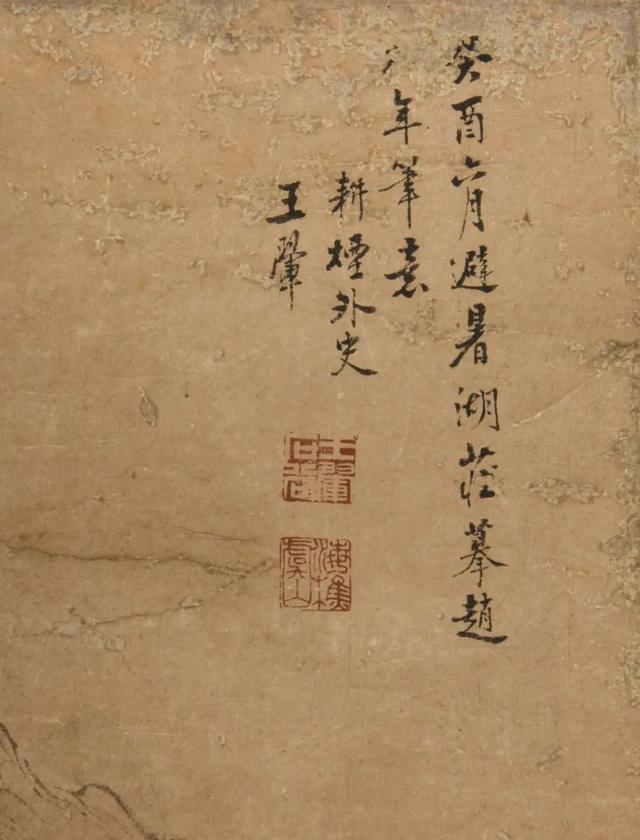 癸酉六月避暑湖莊摹趙
年筆意
耕煙外史
王翬
王翬
海虞